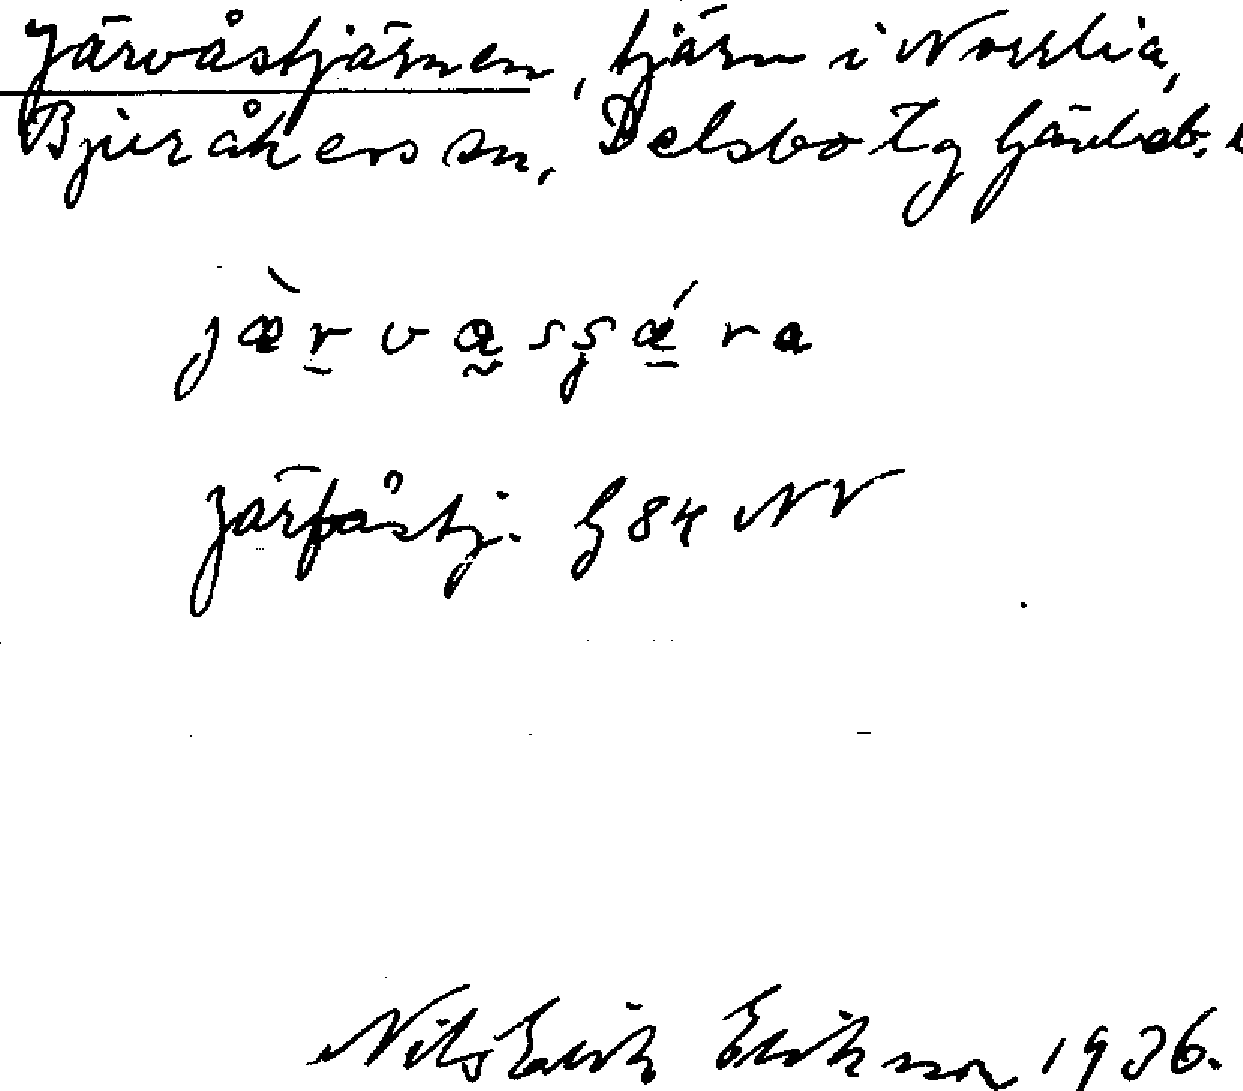 Järvåstjärnen, tjärn i Norrlia,
Bjuråkers sn, Delsbo tg Gävleb. l
jæ̀r̠va̰sʂǽ̠ra
Järfåstj. G 84 NV
Nils Erik Eriksson 1936.